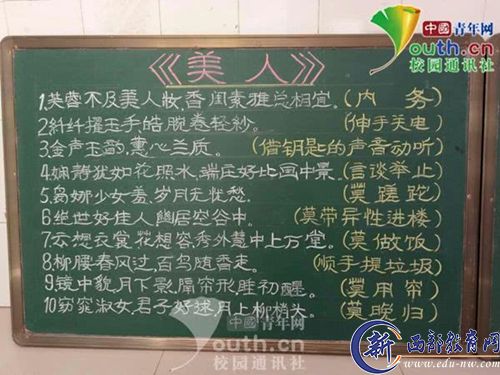 中国青年网
youth.cn
校园通讯社
《美人》
1.芙蓉不及美人妆,香闺素雅总相宜。(内务)
2.纤纤擢玉手,皓腕卷轻纱。(伸手关电)
3.金声玉韵,蕙心兰质。(借钥匙的声音动听)
4.娴静犹如花照水,端庄好比画中景。(言谈举止)
5.袅娜少女羞,岁月无忧愁。(莫蹉跎)
6.绝世好佳人,幽居空谷中。(莫带异性进楼)
7.云想衣裳花想容,秀外慧中上厅堂。(莫做饭)
8.柳腰春风过,百鸟随香走。(顺手提垃圾)
9.镜中貌,月下影,隔帘形胜初醒。(莫用帘)
10.窈窕淑女,君子好逑,月上柳梢头。(莫晚归)
中国青年网
youth.cn
校园通讯社
新 西部教育网
www.edu-nw.com